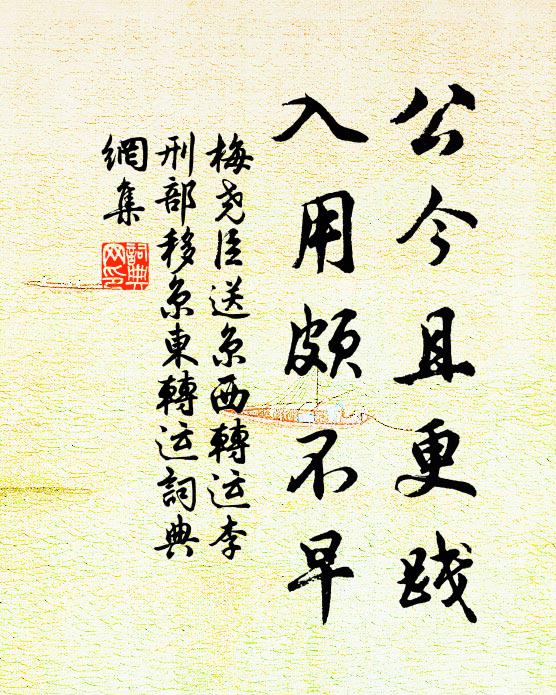 公今且更践
入用颇不早
梅尧臣送京西轉运李
刑部移京東轉运詞典
網集
詞典
网印